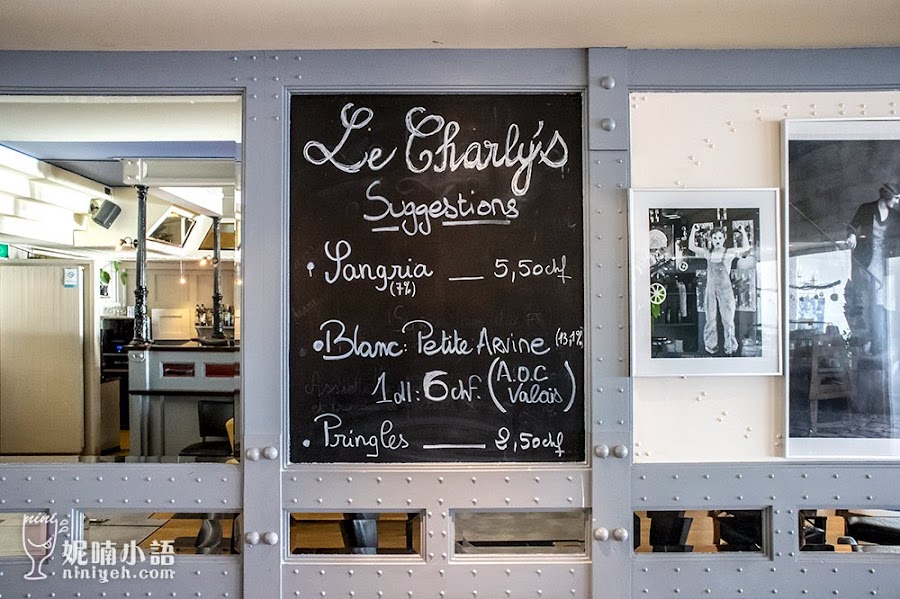 Le Charly's
Suggestions
Sangria — 5,50chf
(7%)
Blanc: Petite Arvine (13,1%)
1dl: 6chf. (A.O.C
Valais)
Pringles — 2,50chf
nini
妮喃小語
niniyeh.com